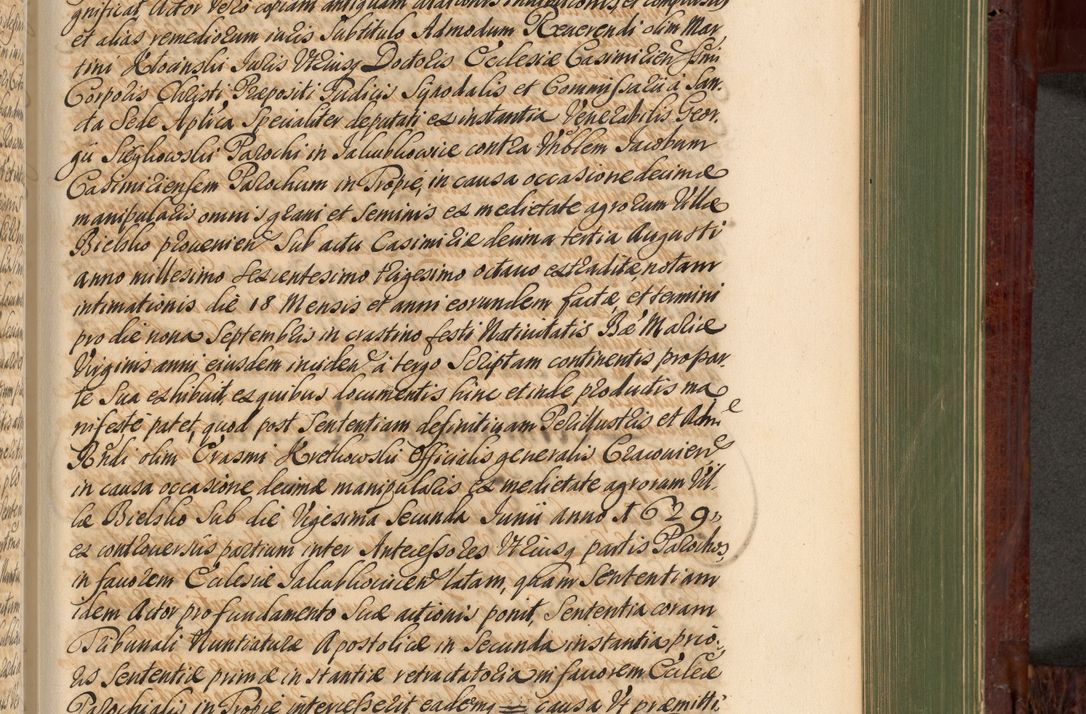 gnificat Actor vero copiam antiquam
et alias remediorum iuris Subtitulo Admodum Reuerendi olim Mar
tini Kłoinski Juris Vtriusq Doctoris Ecclesiæ Casimirien Ssmi
Corporis Christi Præpositi Judicis Synodalis et Commissarii à San
cta Sede Aplica Specialiter deputati ex instantia Venerabilis Geor
gii Stęgkowski Parochi in Jakubkowice contra Vnblem Jacobum
Casimiriensem Parochum in Tropie, in causa occasione decimæ
manipularis omnis grani et Seminis ex medietate agrorum Villæ
Bielsko prouenien Sub actu Casimiriæ decima tertia Augusti
anno millesimo sexcentesimo trigesimo octauo extraditæ notam
intimationis die 18 Mensis et anni eorundem factæ, et termini
pro die nona Septembris in crastino festi Natiuitatis Bæ Mariæ
Virginis anni eiusdem inciden à tergo Scriptam continentis pro par
te Sua exhibuit, ex quibus documentis hinc et inde productis ma
nifestè patet, quod post Sententiam definitiuam Perillustris et Adm
Rndi olim Erasmi Kretkowski Officialis generalis Cracouien
in causa occasione decimæ manipularis ex medietate agrorum Vil
læ Bielsko Sub die Vigesima Secunda Junii anno 1629
ex controuersiis partium inter Antecessores Vtriusq partis Parochos
in fauorem Ecclesiæ Jakubkouicen latam, quam Sententiam
idem Actor pro fundamento Suæ actionis ponit, Sententia coram
Tribunali Nuntiaturæ Apostolicæ in Secunda instantia prio
ris Sententiæ primæ instantiæ retractatoria in fauorem Ecclæ
Parochialis in Tropie intercesserit eademq causa Vt præmitti